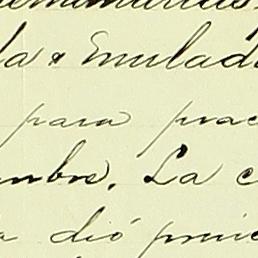 la & Emulad
para prac
mbre. La c
dió princ